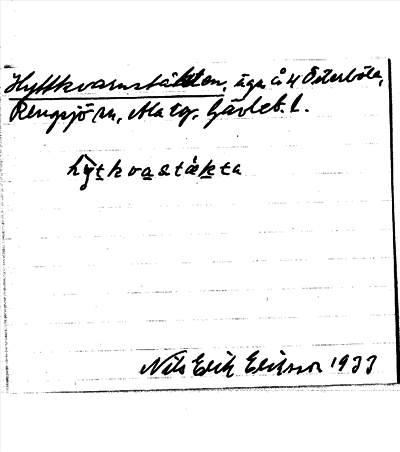 Hyttkvarnstäkten, äga å 4 Österböle,
Rengsjö sn, Ala tg. Gävleb. l.
hy̆tkvastäkta
Nils Erik Eriksson 1933